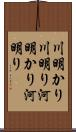 川明かり
川明り河
明かり河
明り